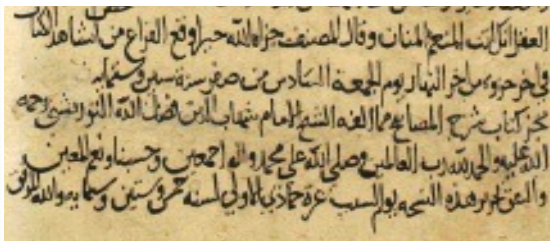 الغفر انك انت المنعم المنان وقال المصنف جزاه الله خيرا وقع الفراغ من انشاء هذا الكتاب
في اخر جزء من اخر النهار يوم الجمعة السادس من صفر سنة ستين وستمايه
نجز كتاب شرح المصابيح مما الفه الشيخ الامام شهاب الدين فضل الله التوربشتي رحمه
الله عليه والحمد لله رب العالمين وصلى الله على محمد واله اجمعين وحسبنا ونعم المعين
تحرير هذه النسخه يوم السبت غرة جمادي الاولي لسنه خمس وستين وستمايه والله الموفق